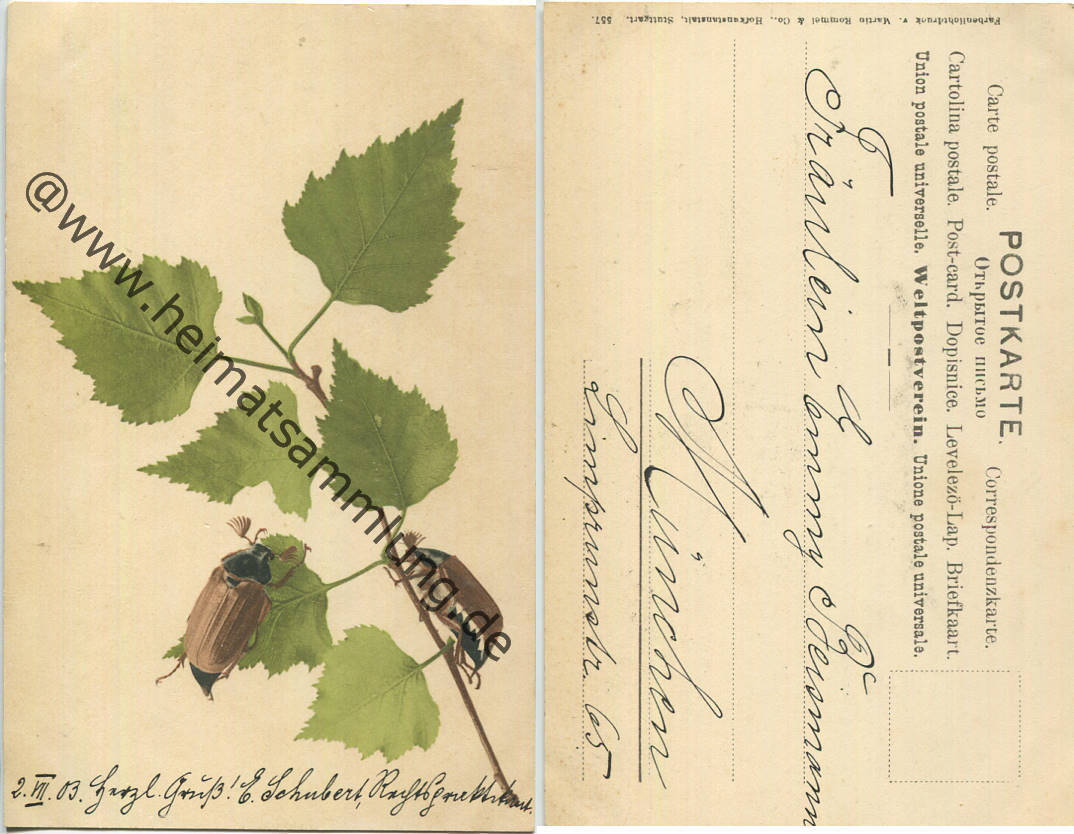 @www.heimatsammlung.de
2. VII. 03. Herzl. Gruß! E. Schubert, Rechtspraktikant.
POSTKARTE.
Carte postale. Открытое письмо Correspondenzkarte.
Cartolina postale. Post-card. Dopisnice. Levelező-Lap. Briefkaart.
Union postale universelle. Weltpostverein. Unione postale universale.
Fräulein Fanny Reismann
München
Limprunstr. 65
Farbenlichtdruck v. Martin Rommel & Co., Hofkunstanstalt, Stuttgart. 557.